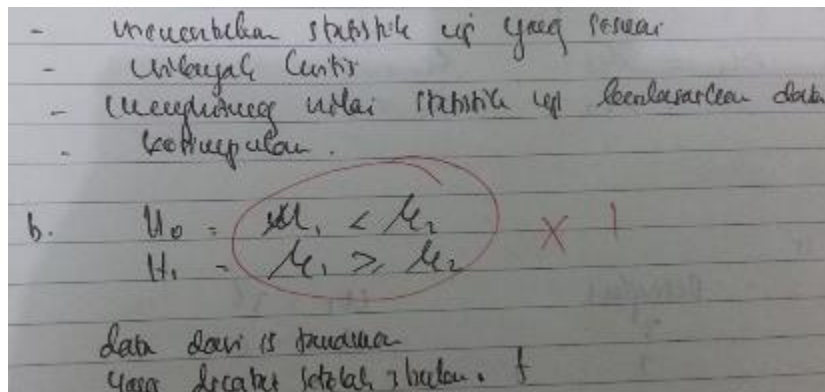 - menentukan statistik uji yang sesuai
- wilayah kritis
- menghitung nilai statistik uji berdasarkan data
- kesimpulan.
b. H₀ = μ₁ < μ₂ X 1
H₁ = μ₁ ≥ μ₂
data dari 15 tanaman
yang dicatat setelah 3 bulan.